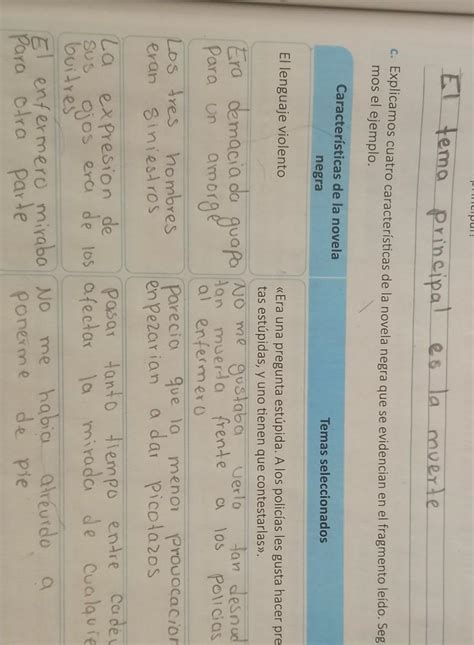 El tema principal es la muerte
c. Explicamos cuatro características de la novela negra que se evidencian en el fragmento leído. Seg
mos el ejemplo.
Características de la novela
negra
Temas seleccionados
El lenguaje violento
«Era una pregunta estúpida. A los policías les gusta hacer pre
tas estúpidas, y uno tienen que contestarlas».
Era demaciada guapa
para un amorge
No me gustaba verla tan desnud
tan muerta frente a los policias
al enfermero
Los tres hombres
eran siniestros
Parecia que la menor provocacion
enpezarian a dar picotazos
La expresion de
sus ojos era de los
buitres
Pasar tanto tiempo entre cadev
afectar la mirada de cualquie
El enfermero miraba
para otra parte
No me habia atreurdo a
ponerme de pie